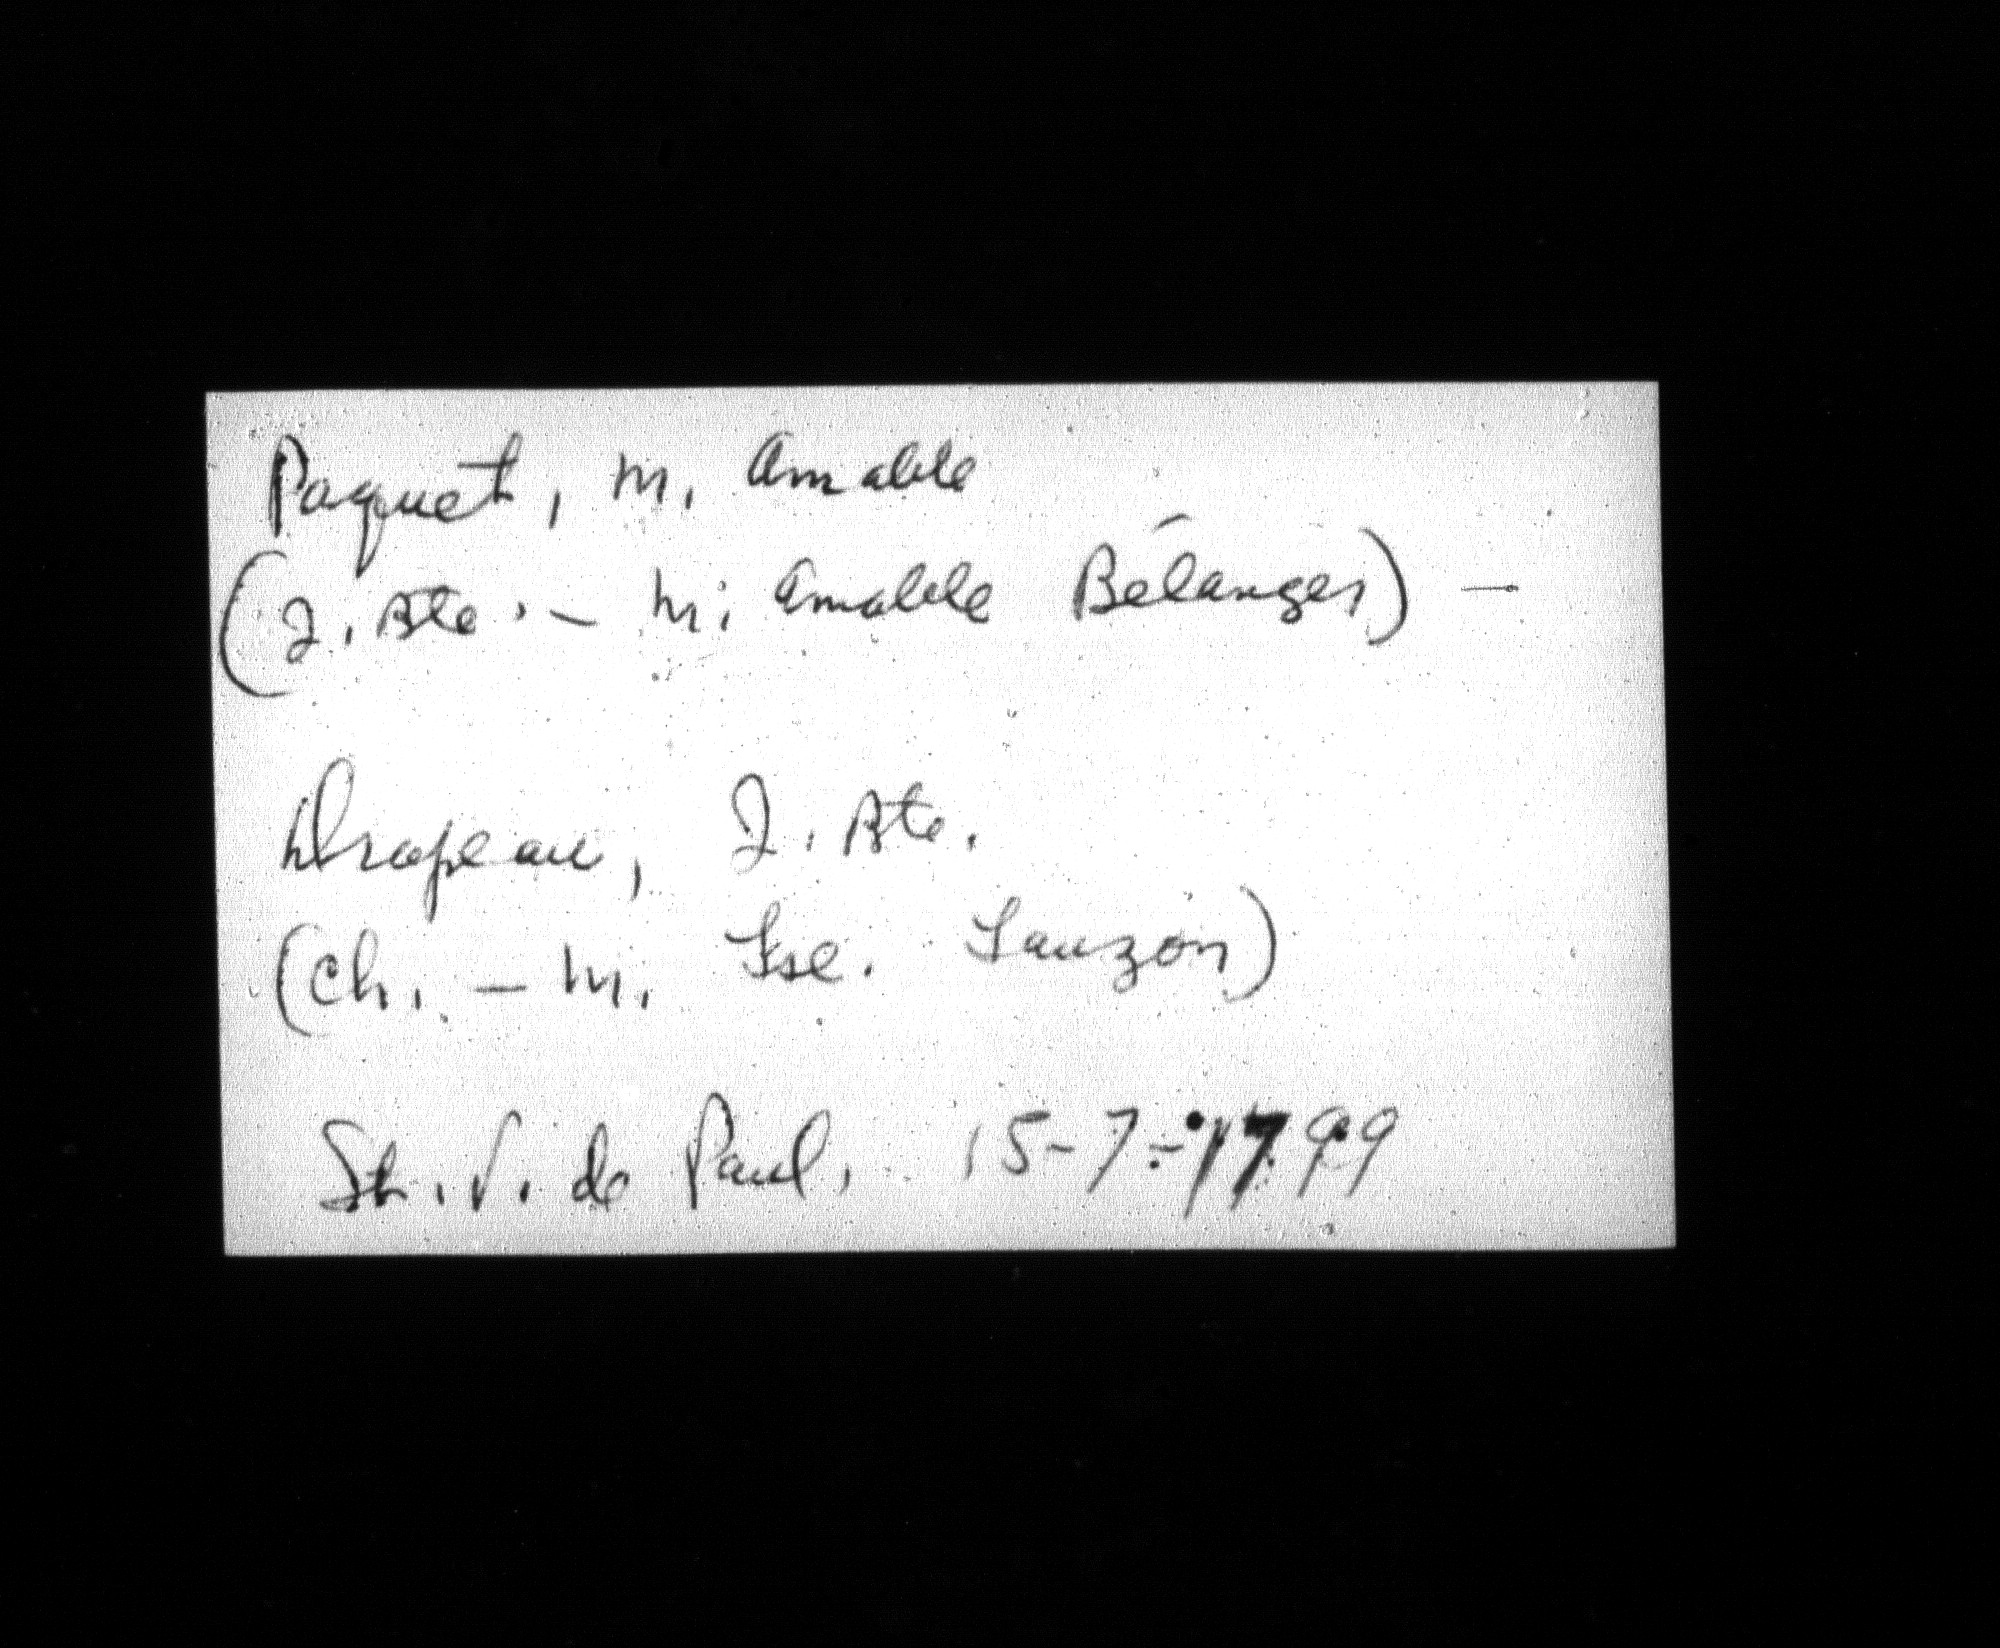 Paquet, M. Amable
(J. Bte. - M. Amable Bélanger) -
Drapeau, J. Bte.
(Ch. - M. Fse. Lauzon)
St. V. de Paul, 15-7-1799